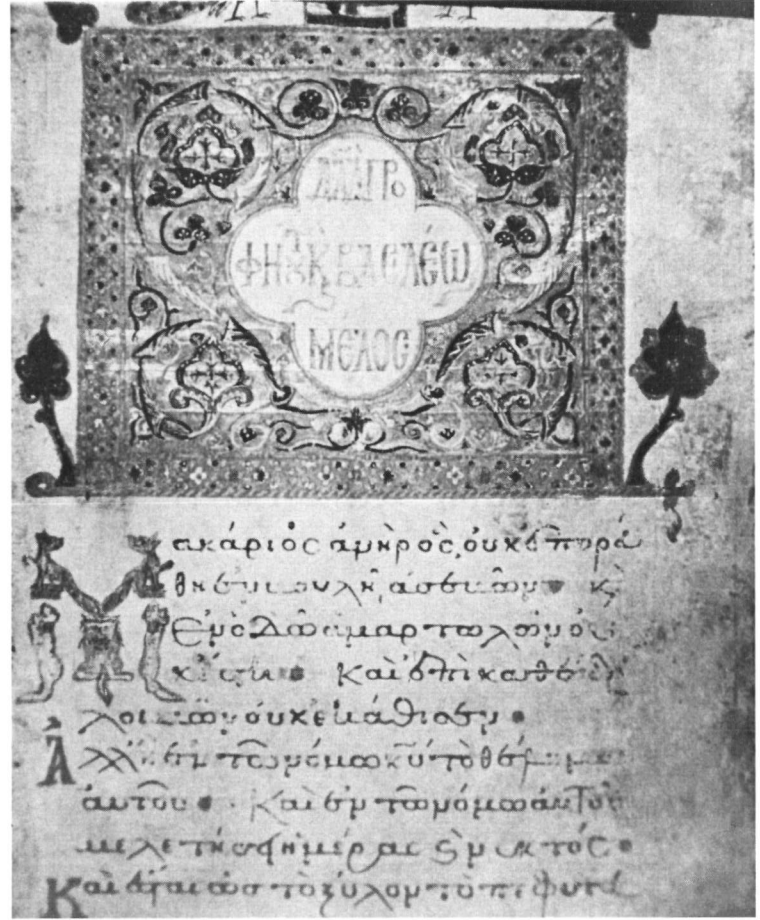 ΔΑΔ ΠΡΟ
ΦΗΤΟΥ Κ ΒΑΣΙΛΕΩ
ΜΕΛΟΣ
Μακάριος ἀνὴρ ὃς οὐκ ἐπορεύ
θη ἐν βουλῇ ἀσεβῶν· κὶ
ἐν ὁδῶ ἁμαρτωλῶν οὐ
κ ἔστη· Καὶ ἐπὶ καθέδρα
λοιμῶν οὐκ ἐκάθισεν·
Ἀλλ' ἢ ἐν τῶ νόμω κυ τὸ θέλημα
αὐτοῦ· Καὶ ἐν τῶ νόμω αὐτοῦ
μελετήσει ἡμέρας ϗ νυκτός·
Καὶ ἔσται ὡς τὸ ξύλον τὸ πεφυτευ